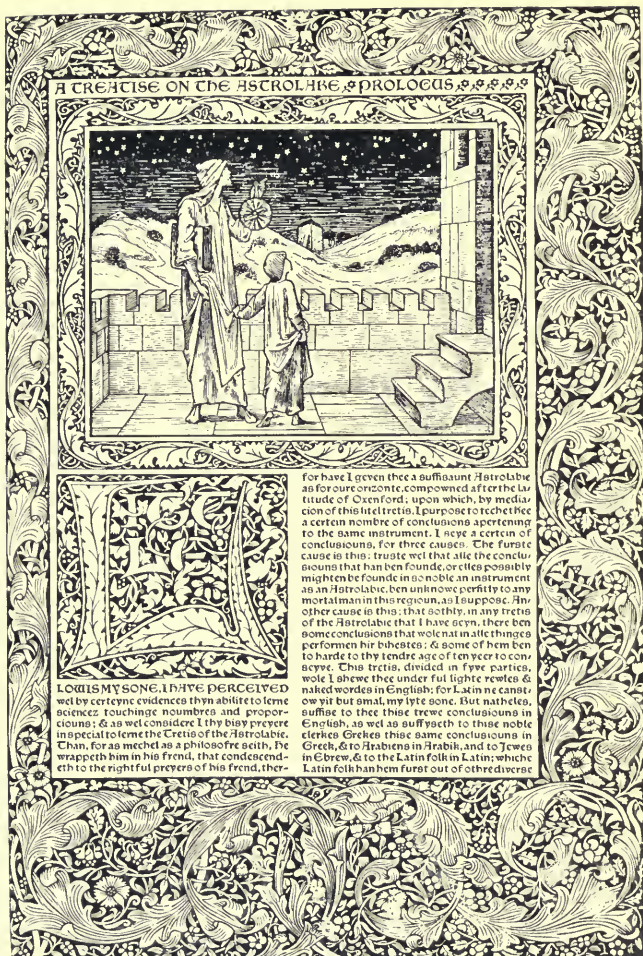 A TREATISE ON THE ASTROLABE PROLOGUS
LOWIS MY SONE, I HAVE PERCEIVED
wel by certeyne evidences thyn abilite to lerne
sciencez touchinge noumbres and propor-
ciouns; & as wel considere I thy bisy preyere
in special to lerne the Tretis of the Astrolabie.
Than, for as mechel as a philosofre seith, he
wrappeth him in his frend, that condescend-
eth to the rightful preyers of his frend, ther-
for have I geven thee a suffisaunt Astrolabie
as for oure orizonte, compowned after the la-
titude of Oxenford; upon which, by media-
cion of this litel tretis, I purpose to teche thee
a certein nombre of conclusions apertening
to the same instrument. I seye a certein of
conclusiouns, for three causes. The furste
cause is this: truste wel that alle the conclu-
siouns that han ben founde, or elles possibly
mighten be founde in so noble an instrument
as an Astrolabie, ben unknowe perfitly to any
mortal man in this regioun, as I suppose. An-
other cause is this; that sothly, in any tretis
of the Astrolabie that I have seyn, there ben
some conclusions that wole nat in alle thinges
performen hir bihestes; & some of hem ben
to harde to thy tendre age of ten yeer to con-
seyve. This tretis, divided in fyve parties,
wole I shewe thee under ful lighte rewles &
naked wordes in English; for Latin ne canst-
ow yit but smal, my lyte sone. But natheles,
suffise to thee thise trewe conclusiouns in
English, as wel as suffyseth to thise noble
clerkes Grekes thise same conclusiouns in
Greek, & to Arabiens in Arabik, and to Jewes
in Ebrew, & to the Latin folk in Latin; whiche
Latin folk han hem furst out of othre diverse